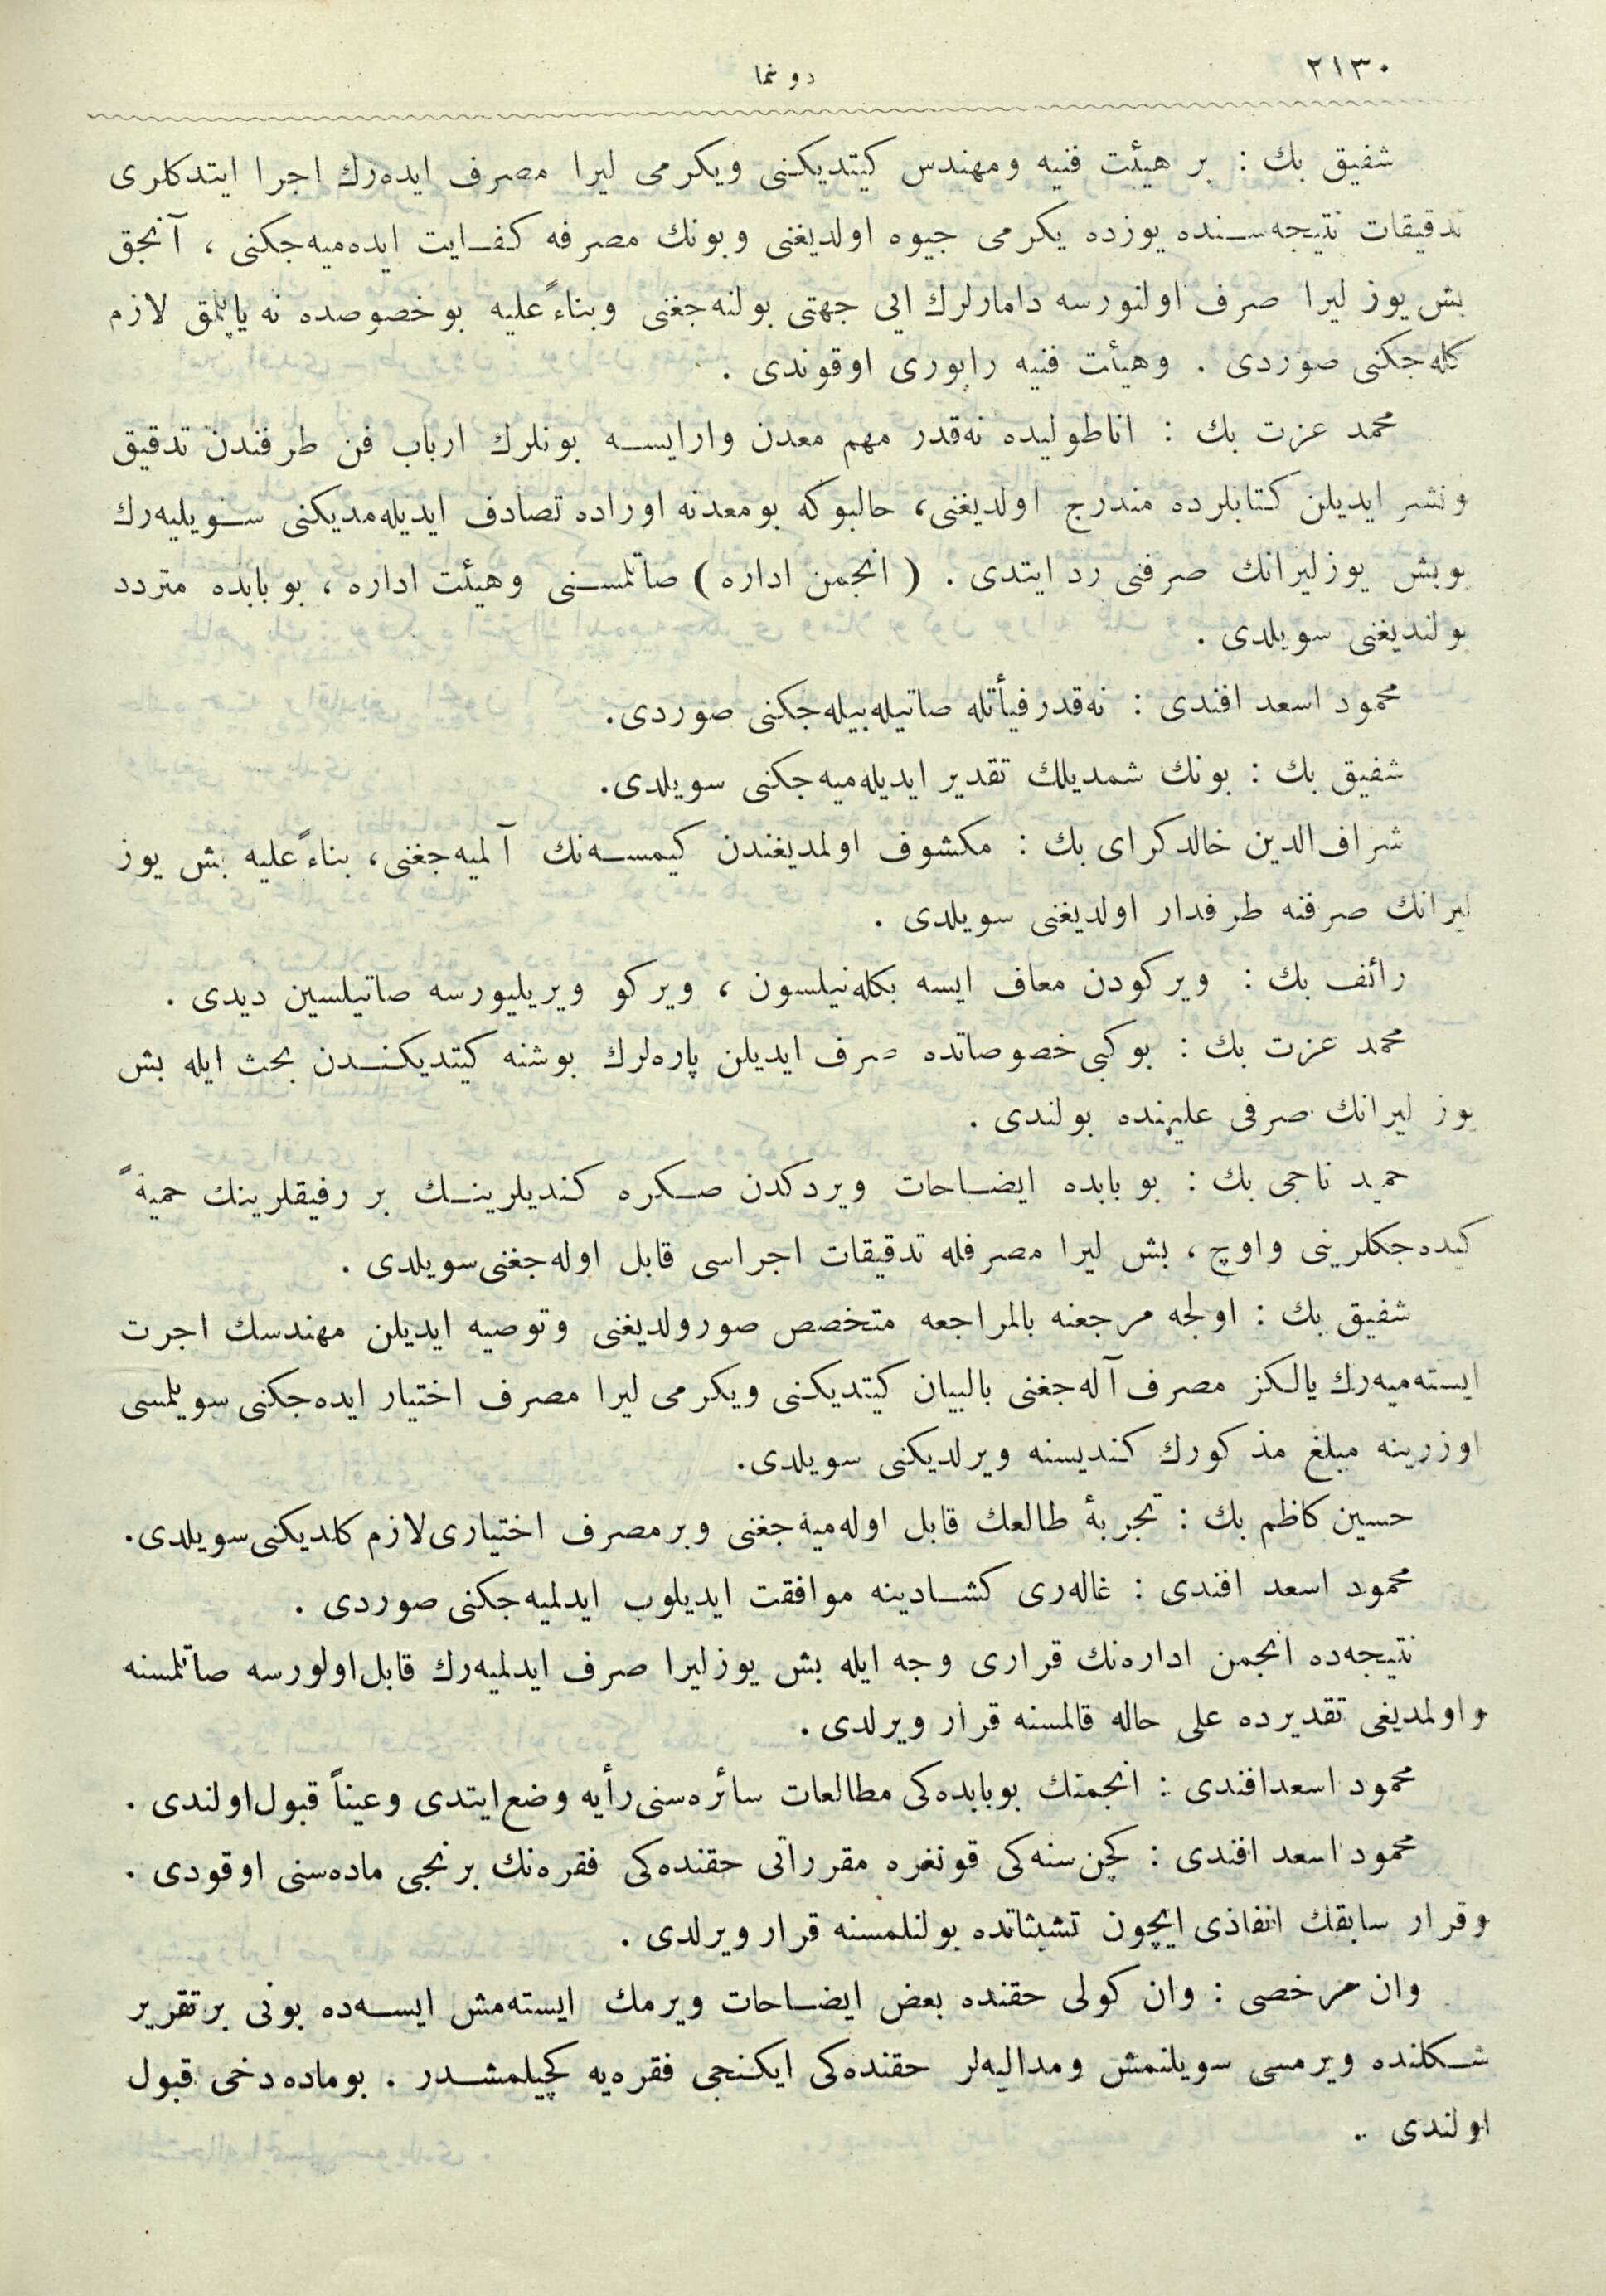 ٢١٣٠
دونما
شفيق بك : بر هيئت فنيه ومهندس كيتديكنى ويكرمى ليرا مصرف ايده‌رك اجرا ايتدكلرى
تدقيقات نتيجه‌سنده يوزده يكرمى جيوه اولديغنى وبونك مصرفه كفايت ايده‌ميه‌جكنى ، آنجق
بش يوز ليرا صرف اولنورسه دامارلرك ايى جهتى بولنه‌جغنى وبناءً عليه بوخصوصده نه ياپلمق لازم
كله‌جكنى صوردى . وهيئت فنيه راپورى اوقوندى .
محمد عزت بك : اناطوليده نه‌قدر مهم معدن وارايسه بونلرك ارباب فن طرفندن تدقيق
ونشر ايديلن كتابلرده مندرج اولديغنى، حالبوكه بومعدنه اوراده تصادف ايديله‌مديكنى سويليه‌رك
بوبش يوزليرانك صرفنى رد ايتدى . ( انجمن اداره ) صاتلمسنى وهيئت اداره ، بوبابده متردد
بولنديغنى سويلدى .
محمود اسعد افندى : نه‌قدر فيأتله صاتيله‌بيله‌جكنى صوردى.
شفيق بك : بونك شمديلك تقدير ايديله‌ميه‌جكنى سويلدى.
شراف‌الدين خالدكراى بك : مكشوف اولمديغندن كيمسه‌نك آلميه‌جغنى، بناءً عليه بش يوز
ليرانك صرفنه طرفدار اولديغنى سويلدى .
رائف بك : ويركودن معاف ايسه بكله‌نيلسون ، ويركو ويريليورسه صاتيلسين ديدى .
محمد عزت بك : بوكبى خصوصاتده صرف ايديلن پاره‌لرك بوشنه كيتديكندن بحث ايله بش
يوز ليرانك صرفى عليهنده بولندى .
حميد ناجى بك : بوبابده ايضاحات ويردكدن صكره كنديلرينك بر رفيقلرينك حميةً
كيده‌جكلرينى واوچ ، بش ليرا مصرفله تدقيقات اجراسى قابل اوله‌جغنى سويلدى .
شفيق بك : اولجه مرجعنه بالمراجعه متخصص صورولديغنى وتوصيه ايديلن مهندسك اجرت
ايسته‌ميه‌رك يالكز مصرف آله‌جغنى بالبيان كيتديكنى ويكرمى ليرا مصرف اختيار ايده‌جكنى سويلمسى
اوزرينه مبلغ مذكورك كنديسنه ويرلديكنى سويلدى.
حسين كاظم بك : تجربهٔ طالعك قابل اوله‌ميه‌جغنى وبرمصرف اختيارى لازم كلديكنى سويلدى.
محمود اسعد افندى : غاله‌رى كشادينه موافقت ايديلوب ايدلميه‌جكنى صوردى .
نتيجه‌ده انجمن اداره‌نك قرارى وجه ايله بش يوزليرا صرف ايدلميه‌رك قابل اولورسه صاتلمسنه
واولمديغى تقديرده على حاله قالمسنه قرار ويرلدى .
محمود اسعدافندى : انجمنك بوبابده‌كى مطالعات سائره‌سنى رأيه وضع ايتدى وعيناً قبول اولندى .
محمود اسعد افندى : كچن سنه‌كى قونغره مقرراتى حقنده‌كى فقره‌نك برنجى ماده‌سنى اوقودى .
وقرار سابقك انفاذى ايچون تشبثاتده بولنلمسنه قرار ويرلدى .
وان مرخصى : وان كولى حقنده بعض ايضاحات ويرمك ايسته‌مش ايسه‌ده بونى برتقرير
شكلنده ويرمسى سويلنمش ومداليه‌لر حقنده‌كى ايكنجى فقره‌يه كچيلمشدر . بوماده دخى قبول
اولندى ..